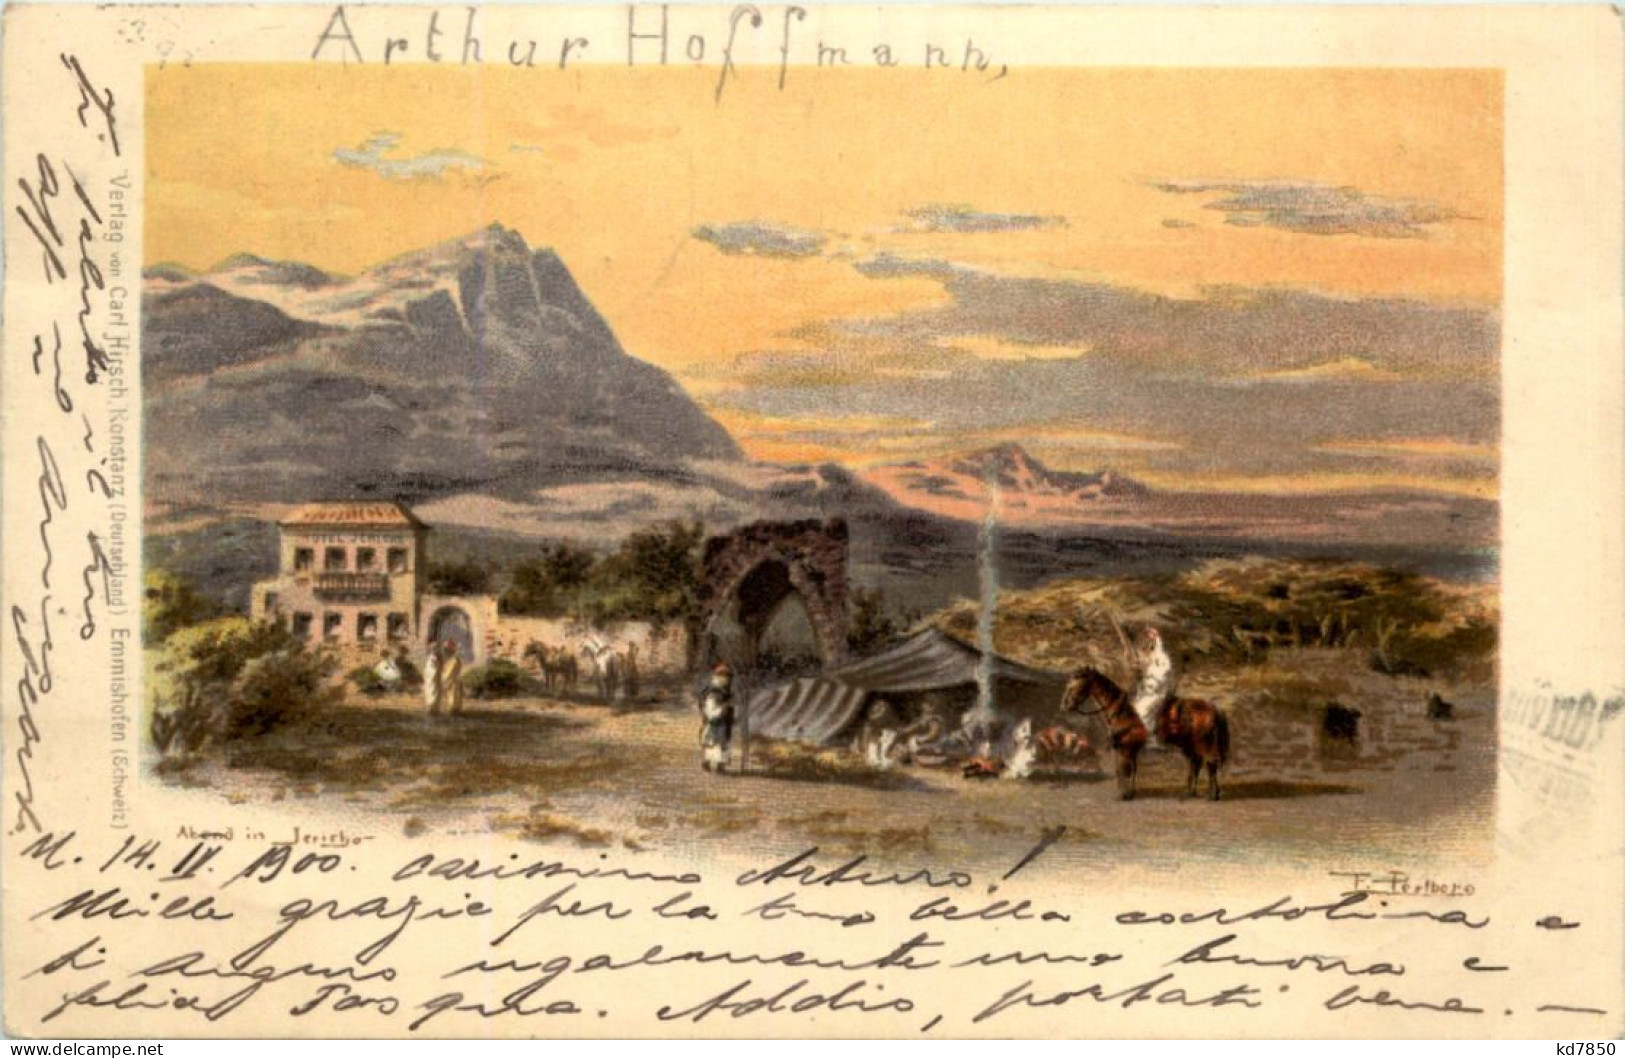 Arthur Hoffmann,
Verlag von Carl Hirsch, Konstanz (Deutschland) Emmishofen (Schweiz)
HOTEL JERICHO
Abend in Jericho
F. Perlberg
M. 14. IV. 1900. Carissimo Arturo!
Mille grazie per la tua bella cartolina e
ti auguro ugualmente una buona e
felice Pasqua. Addio, portati bene. —
Ti saluto il tuo
aff. mo amico
kd7850